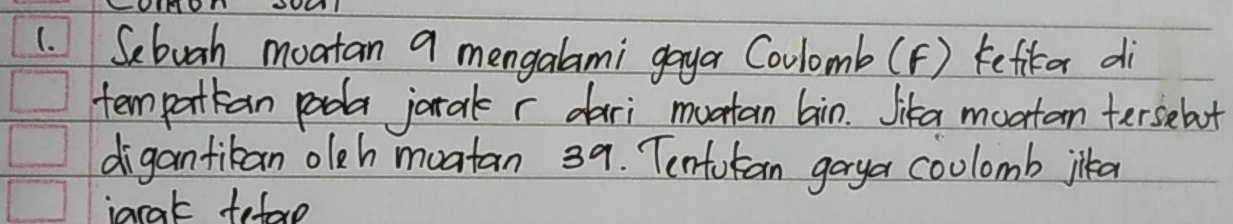 Contoh soal
1. Sebuah muatan q mengalami gaya Coulomb (F) ketika di
tempatkan pada jarak r dari muatan lain. Jika muatan tersebut
digantikan oleh muatan 3q. Tentukan gaya coulomb jika
jarak tetap